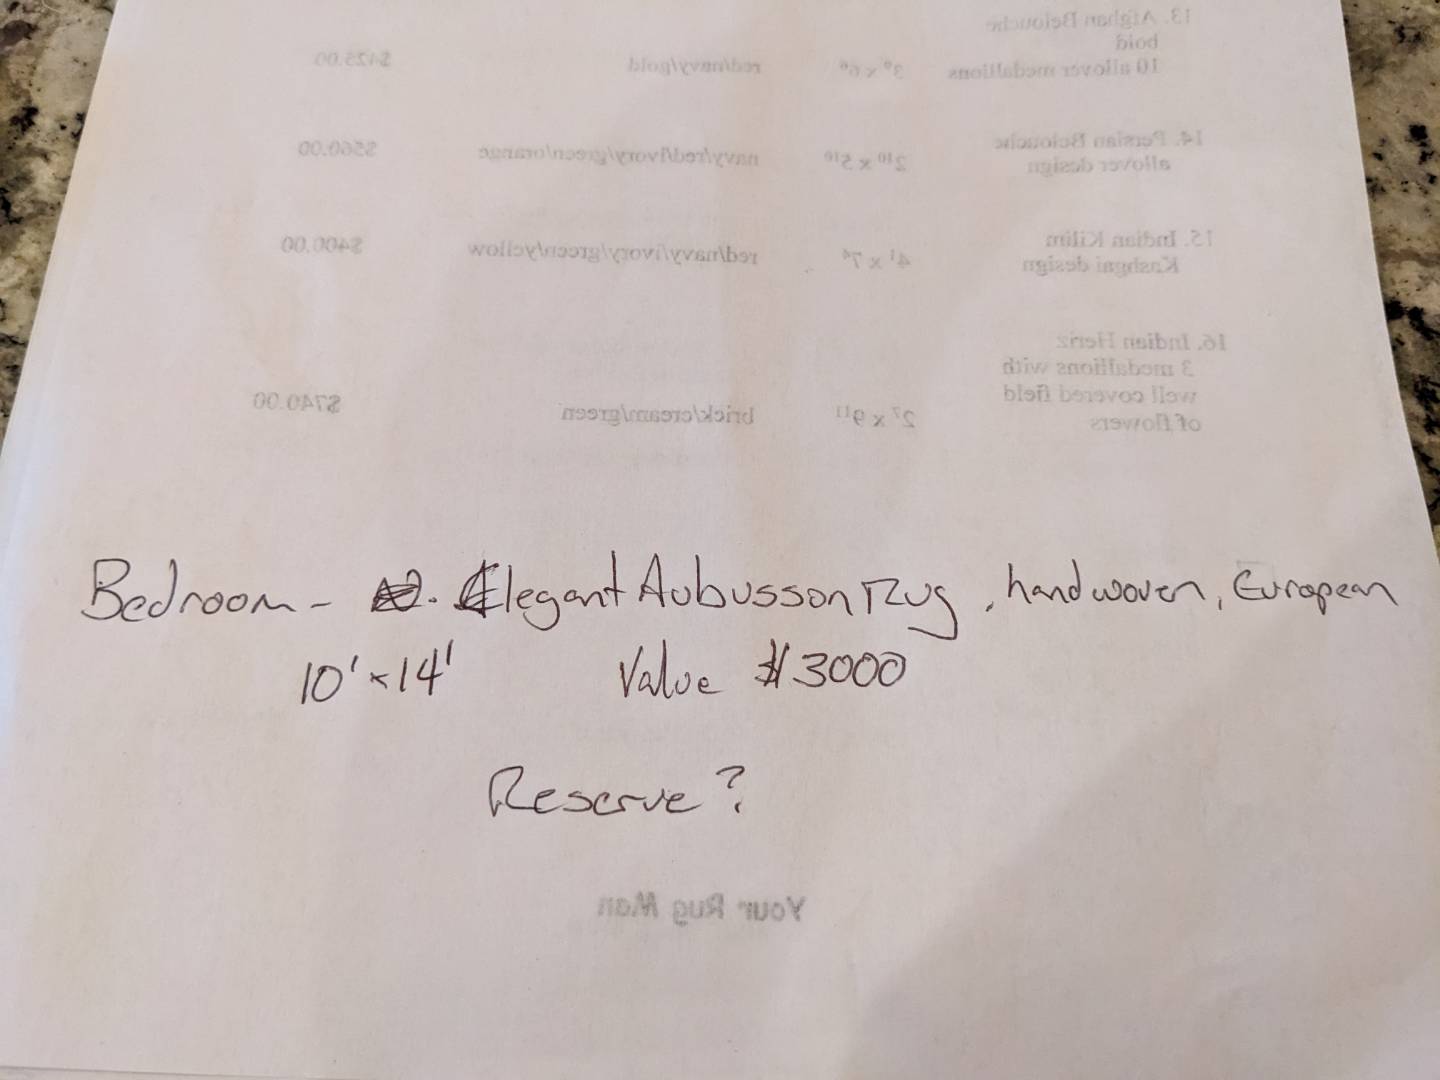 13. Afghan Belouche
bold
10 allover medallions 3⁰ x 6⁶ red/navy/gold $425.00
14. Persian Belouche
allover design 2¹⁰ x 5¹⁰ navy/red/ivory/green/orange $560.00
15. Indian Kilim
Kashgai design 4¹ x 7⁴ red/navy/ivory/green/yellow $400.00
16. Indian Heriz
3 medallions with
well covered field 2⁷ x 9¹¹ brick/cream/green $740.00
of flowers
Bedroom - Elegant Aubusson Rug, handwoven, European
10' x 14' Value $3000
Reserve?
Your Rug Man